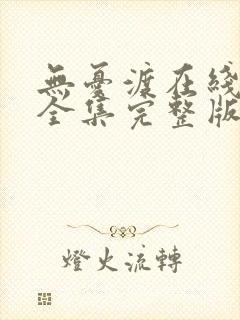 無憂渡在綫
全集完整版
燈火流轉